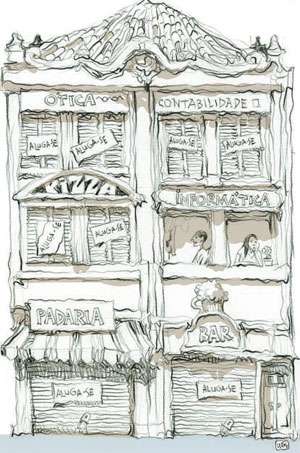 ÓTICA
CONTABILIDADE
ALUGA-SE
ALUGA-SE
ALUGA-SE
ALUGA-SE
PIZZA
INFORMÁTICA
ALUGA-SE
ALUGA-SE
PADARIA
BAR
ALUGA-SE
ALUGA-SE